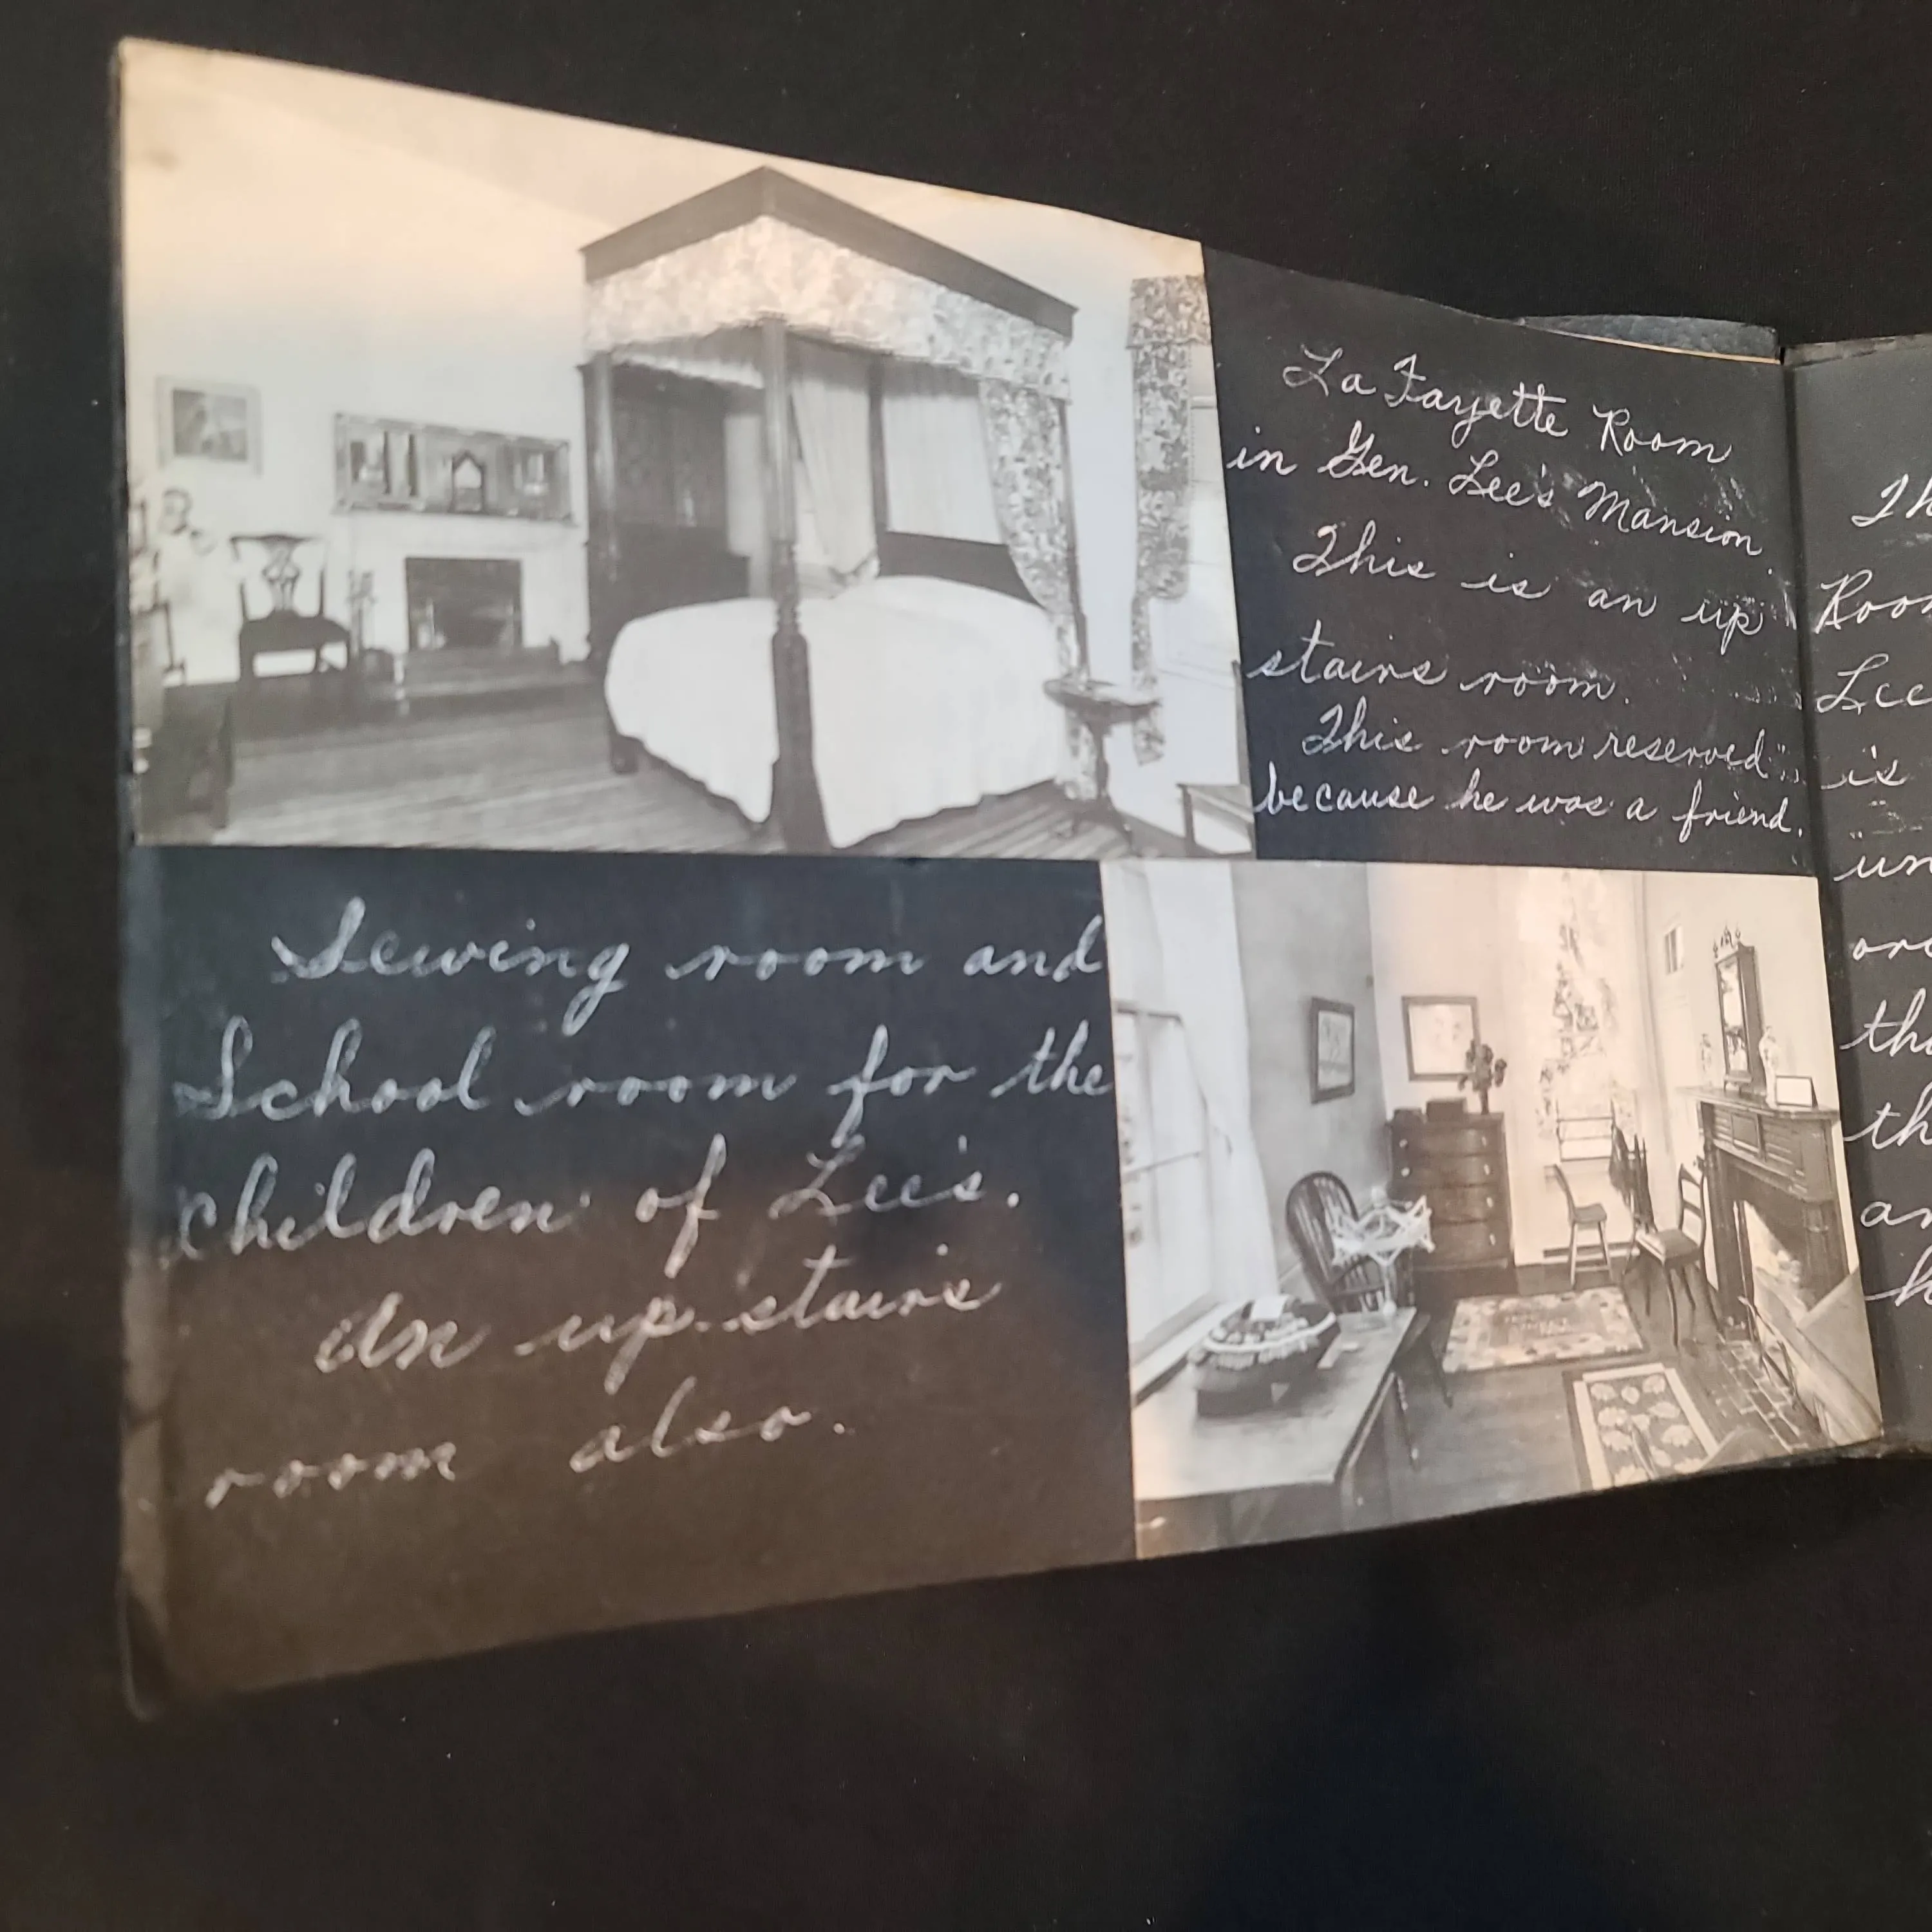 La Fayette Room
in Gen. Lee's Mansion.
This is an up
stairs room.
This room reserved
because he was a friend.
Sewing room and
School room for the
children of Lee's.
An up-stairs
room also.
Lee
is